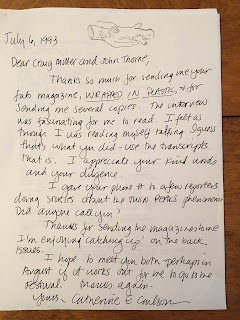 July 6, 1993
Dear Craig Miller and John Thorne,
Thanks so much for sending me your
fab magazine, WRAPPED IN PLASTIC, & for
sending me several copies. The interview
was fascinating for me to read. I felt as
though I was reading myself talking. I guess
that's what you did - use the transcripts,
that is. I appreciate your kind words
and your diligence.
I gave your phone # to a few reporters
doing stories about the Twin Peaks phenomenon.
Did anyone call you?
Thanks for sending the magazines home.
I'm enjoying "catching up" on the back
issues.
I hope to meet you both perhaps in
August if it works out for me to go to the
Festival. Thanks again.
Yours - Catherine E Coulson